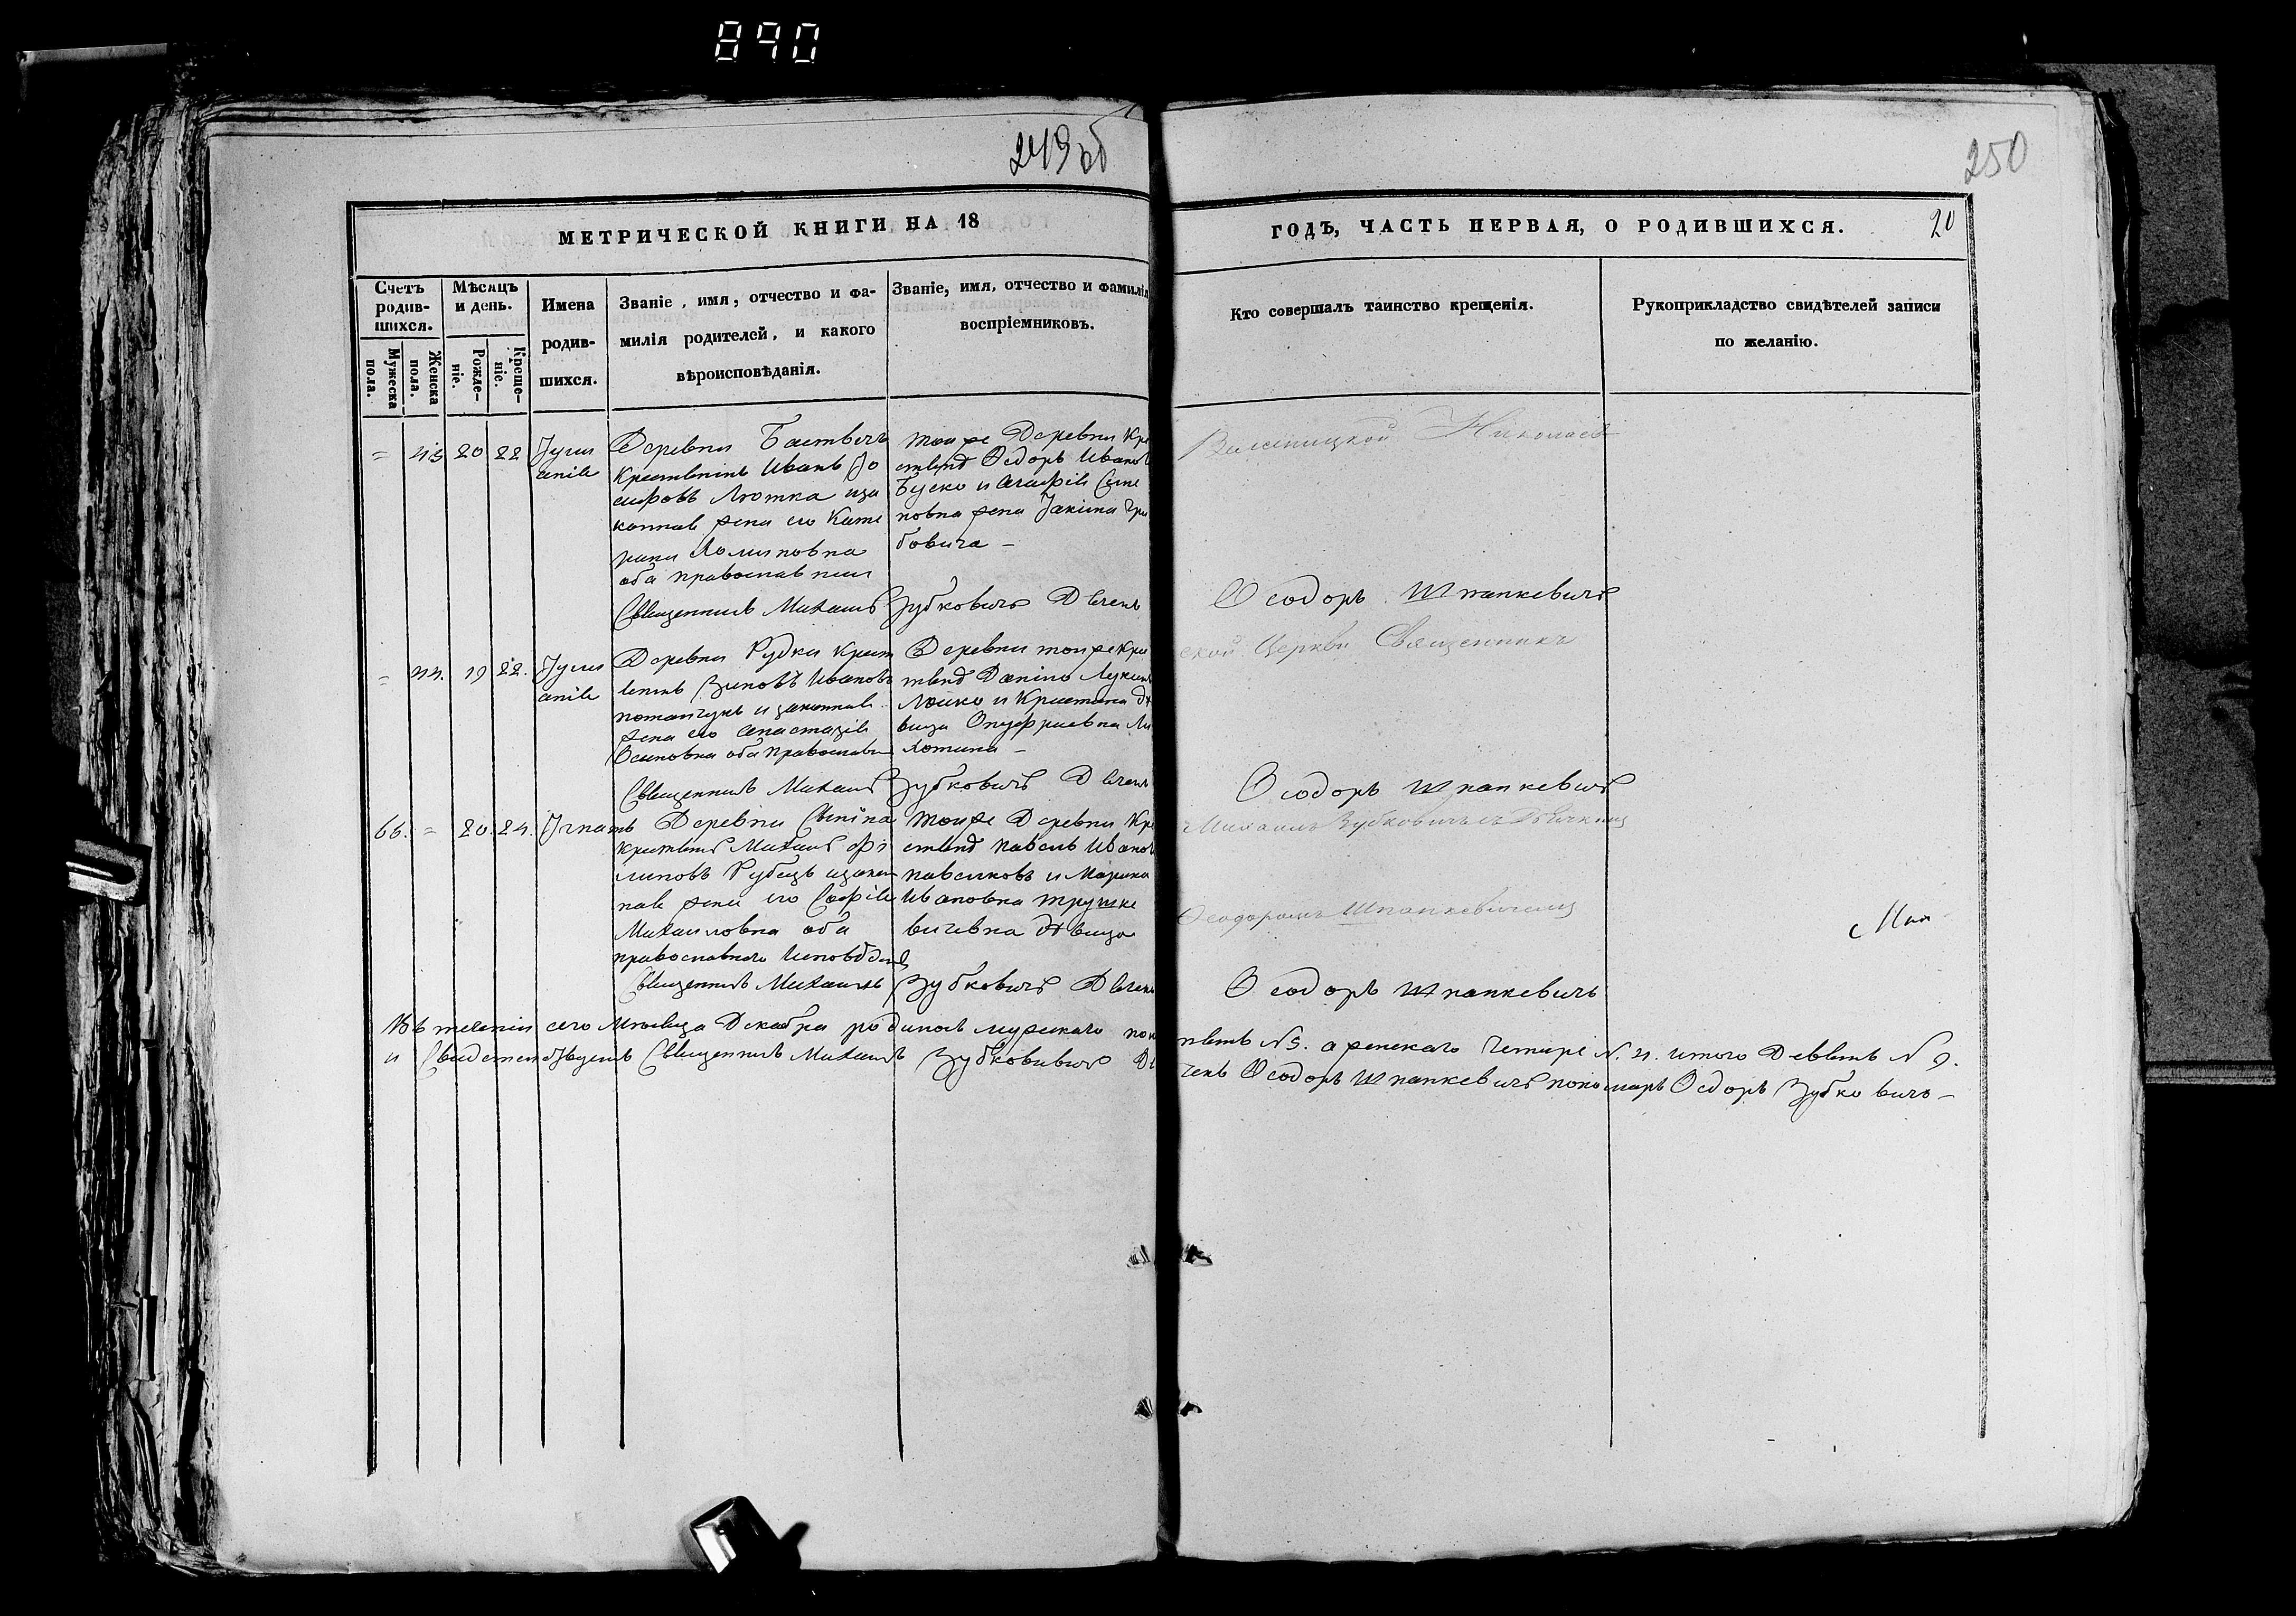 890
249 об
250
МЕТРИЧЕСКОЙ КНИГИ НА 18
ГОДЪ, ЧАСТЬ ПЕРВАЯ, О РОДИВШИХСЯ.
20
Счетъ родив-шихся.
Мужеска пола.
Женска пола.
Мѣсяцъ и день.
Рожде-ніе.
Креще-ніе.
Имена родив-шихся.
Званіе, имя, отчество и фа-
милія родителей, и какого
вѣроисповѣданія.
Званіе, имя, отчество и фамилія
воспріемниковъ.
Кто совершалъ таинство крещенія.
Рукоприкладство свидѣтелей записи
по желанію.
= 43 20 22 Іули
анія
Деревни
Крестьянинъ Иванъ Іо
сифовъ Лютка иза
конная жена его Кате
рина
оба православныи
тойже Деревни Кре
стьянъ Ѳедоръ Иванов
Буско и Агафія Семе
новна жена Іакима Гри
бовича —
Николаев
Священникъ Михаилъ Зубковичъ Дьячекъ
Ѳеодоръ Шпанкевичъ
ской Церкви Священникъ
= 44. 19 22. Іули
анія
Деревни Рудки Крест
янинъ Зиновъ Ивановъ
и законная
жена его Анастазія
Осиповна оба православн
Деревни тойже Кре
стьянъ Данило
Лойко и Кристина дѣ
вица Онуфриевна Ли
хотина —
Священникъ Михаилъ Зубковичъ Дьячекъ
Ѳеодоръ Шпанкевичъ
66. = 20. 24. Игнатъ
Деревни
Крестьянъ Михаилъ Фи
липовъ Рубецъ изакон
ная жена его Софія
Михаиловна оба
православнаго исповѣданія
тойже Деревни Кре
стьянъ Павелъ Иванов
Павлюковъ и Марина
Ивановна Трушке
вичевна дѣвица
Михаилъ Зубковичъ съ Дьячкомъ
Ѳеодоромъ Шпанкевичемъ
Мих
Священникъ Михаилъ Зубковичъ Дьячекъ
Ѳеодоръ Шпанкевичъ
Въ теченіи сего Мѣсяца Декабря родилось мужскаго пол
пять N 5. а женскаго Четыре N. 4. итого Девять N 9.
и Свидетельствуемъ Священникъ Михаилъ Зубковичъ Дья
чекъ Ѳеодоръ Шпанкевичъ пономарь Ѳедоръ Зубковичъ —